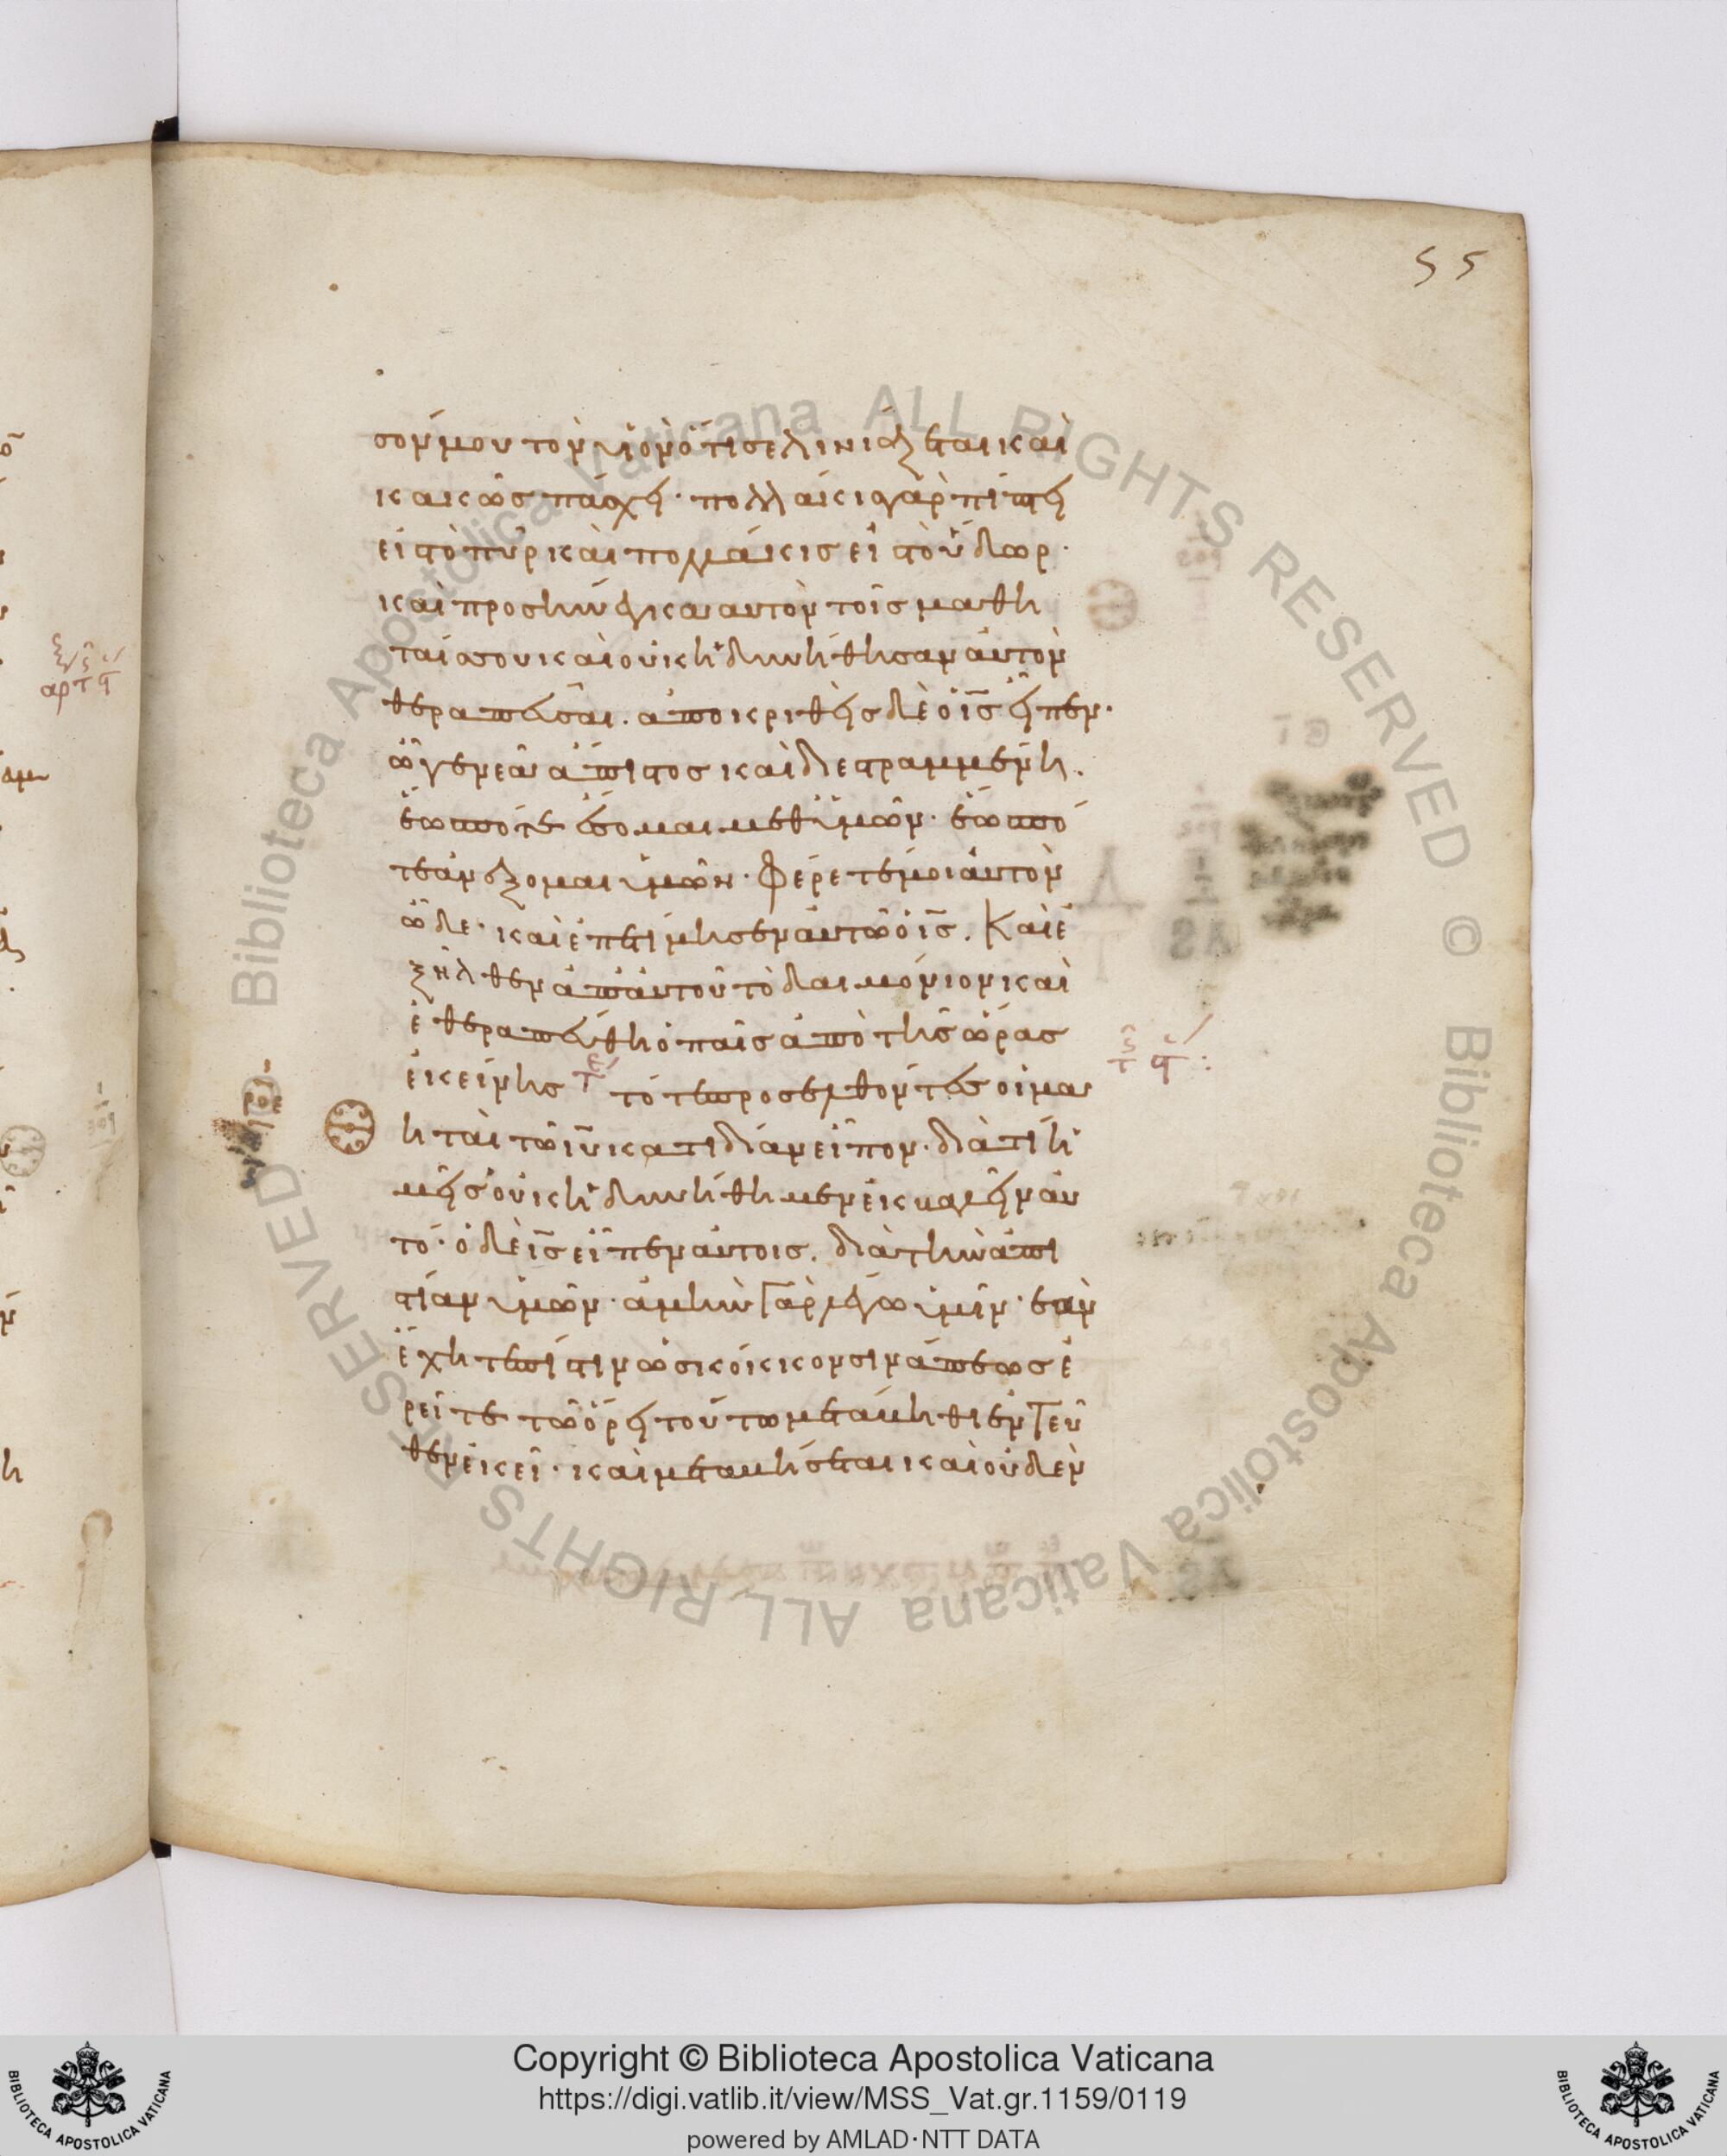 55
σον μου τὸν υἱὸν ὅτι σεληνιάζεται καὶ
κακῶς πάσχει· πολλάκι γὰρ πίπτει
εἰς τὸ πῦρ καὶ πολλάκις εἰς τὸ ὕδωρ·
καὶ προσήνεγκα αὐτὸν τοῖς μαθη
ταῖς σου καὶ οὐκ ἠδυνήθησαν αὐτὸν
θεραπεῦσαι. ἀποκριθεὶς δὲ ὁ ις εἶπεν·
ὦ γενεὰ ἄπιστος καὶ διεστραμμένη.
ἕως πότε ἔσομαι μεθ ὑμῶν· ἕως πό
τε ἀνέξομαι ὑμῶν· φέρετέ μοι αὐτὸν
ὧδε· καὶ ἐπετίμησεν αὐτῶ ὁ ις. Καὶ ἐ
ξῆλθεν ἀπ αὐτοῦ τὸ δαιμόνιον καὶ
ἐθεραπεύθη ὁ παῖς ἀπὸ τῆς ὥρας
ἐκείνης τότε προσελθόντες οἱ μα
θηταὶ τῶ ιυ κατ ιδίαν εἶπον· διὰ τί ἡ
μεῖς οὐκ ἠδυνήθημεν ἐκβαλεῖν αὐ
τό· ὁ δὲ ις εἶπεν αὐτοῖς. διὰ τὴν ἀπι
στίαν ὑμῶν· ἀμὴν γὰρ λέγω ὑμῖν· ἐὰν
ἔχητε πίστιν ὡς κόκκον σινάπεως ἐ
ρεῖτε τῶ ὄρει τούτω μετάβηθι ἐντεῦ
θεν ἐκεῖ· καὶ μεταβήσεται καὶ οὐδὲν
Copyright © Biblioteca Apostolica Vaticana
https://digi.vatlib.it/view/MSS_Vat.gr.1159/0119
powered by AMLAD·NTT DATA
BIBLIOTECA APOSTOLICA VATICANA
BIBLIOTECA APOSTOLICA VATICANA
Biblioteca Apostolica Vaticana ALL RIGHTS RESERVED ©
Biblioteca Apostolica Vaticana ALL RIGHTS RESERVED